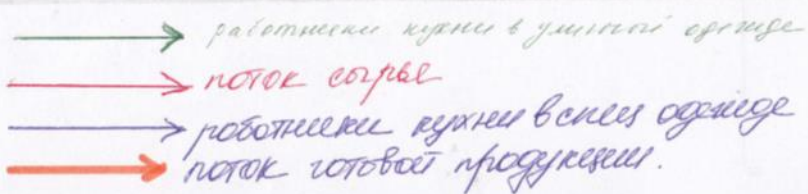 работники кухни в уличной одежде
поток сырья
роботники кухни в спец одежде
поток готовой продукции.